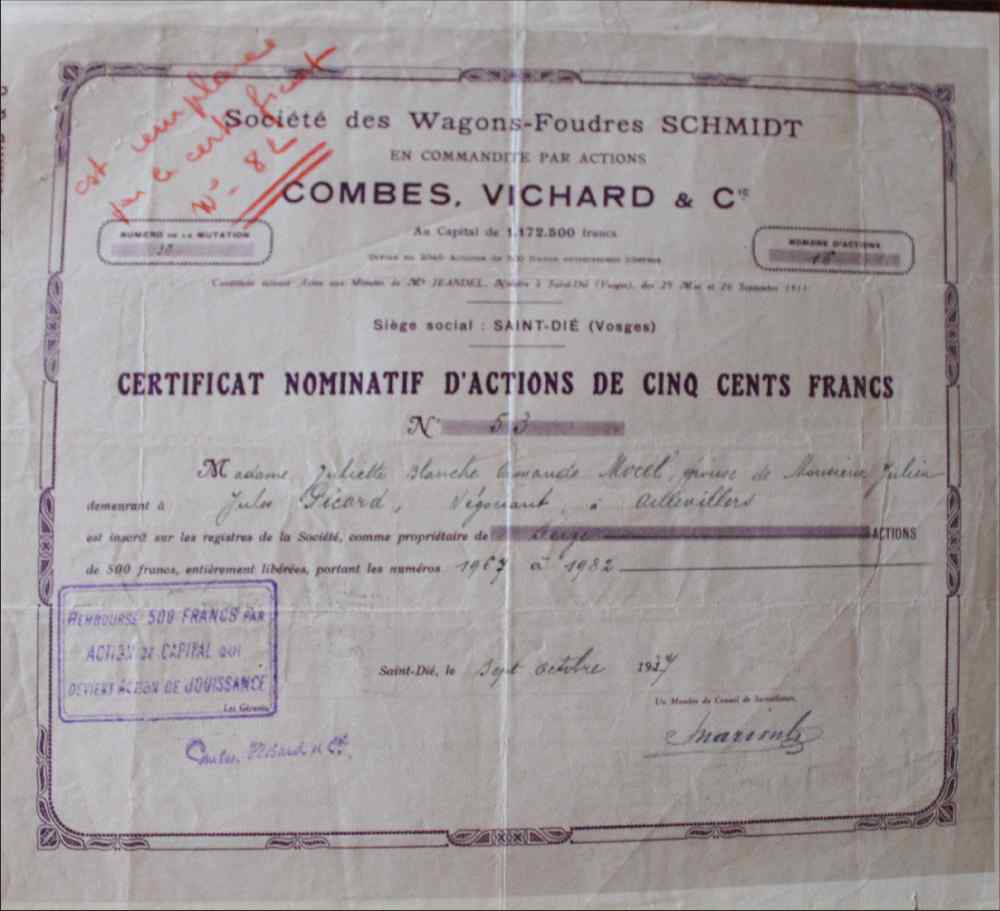 est remplacé
par le certificat
N° 82
Société des Wagons-Foudres SCHMIDT
EN COMMANDITE PAR ACTIONS
COMBES, VICHARD & Cie
Au Capital de 1.172.500 francs
NUMÉRO DE LA MUTATION
30
NOMBRE D'ACTIONS
16
Divisé en 2345 Actions de 500 francs entièrement libérées
Constituée suivant Actes aux Minutes de Me JEANDEL, Notaire à Saint-Dié (Vosges), des 29 Mai et 26 Septembre 1911
Siège social : SAINT-DIÉ (Vosges)
CERTIFICAT NOMINATIF D'ACTIONS DE CINQ CENTS FRANCS
N° 53
Madame Juliette Blanche Amande Mocel, épouse de Monsieur Julien
demeurant à Jules Picard, Négociant, à Aillevillers
est inscrit sur les registres de la Société, comme propriétaire de Seize ACTIONS
de 500 francs, entièrement libérées, portant les numéros 1967 à 1982
REMBOURSÉ 500 FRANCS PAR
ACTION DE CAPITAL QUI
DEVIENT ACTION DE JOUISSANCE
Les Gérants
Combes, Vichard et Cie
Saint-Dié, le sept octobre 1927
Un Membre du Conseil de Surveillance,